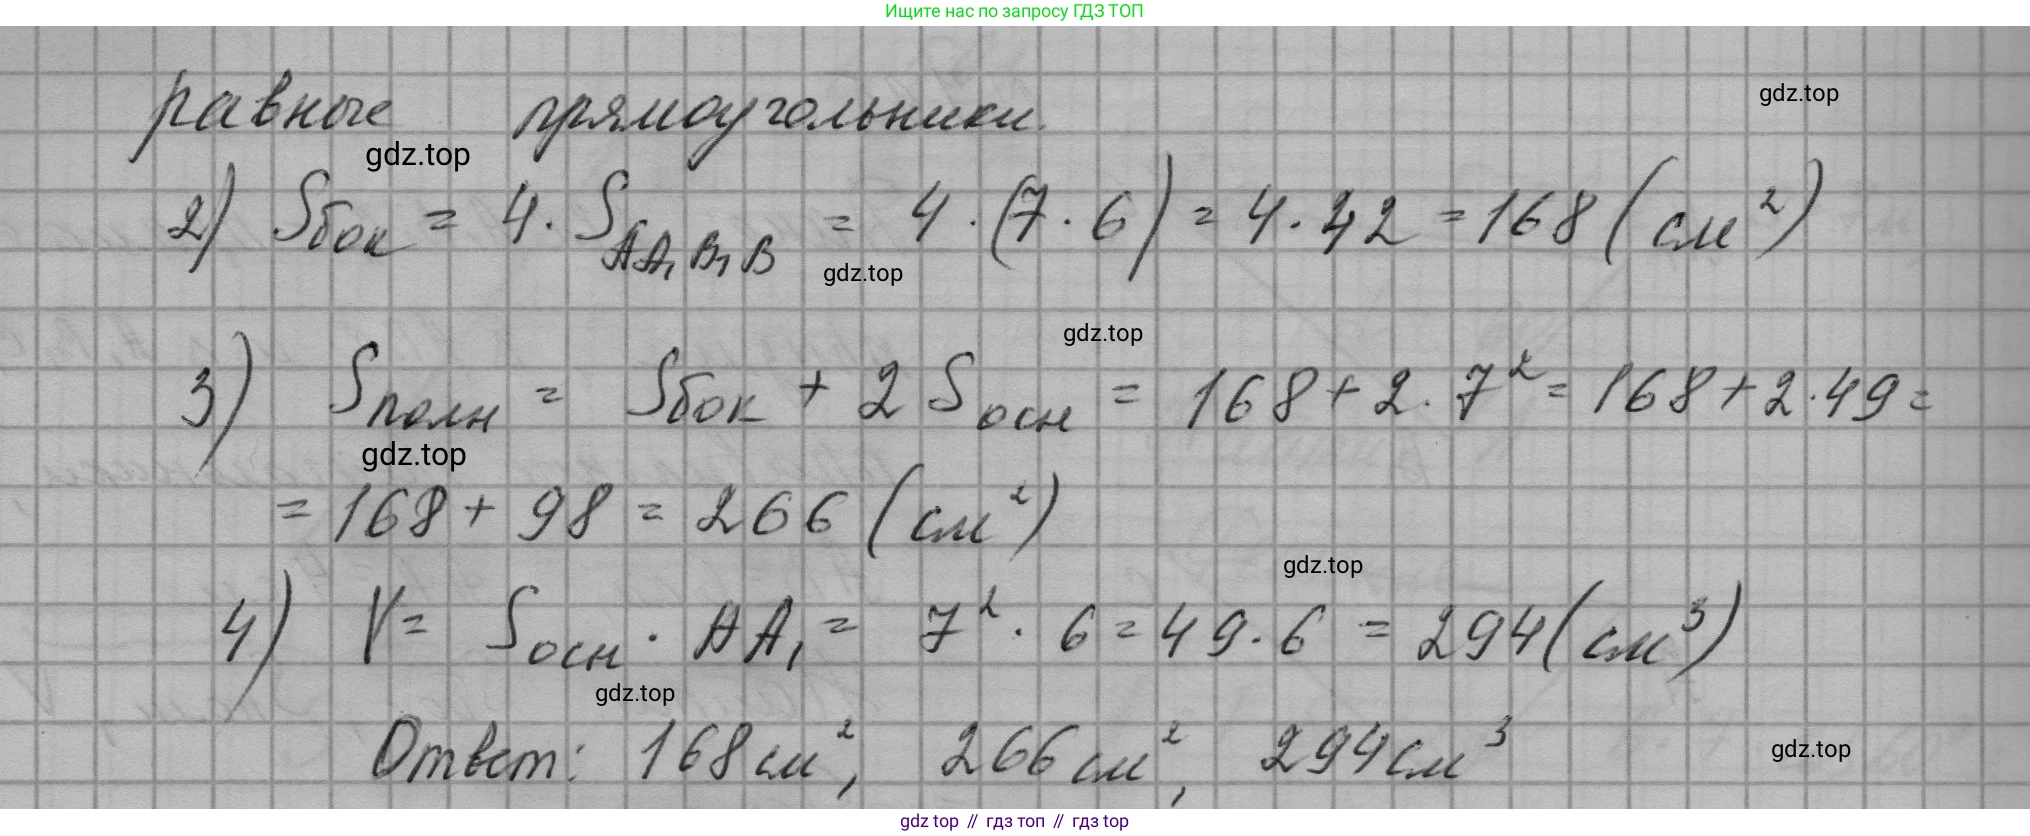 Ищите нас по запросу ГДЗ ТОП
равные прямоугольники.
gdz.top
gdz.top
2) Sбок = 4 · SAA₁B₁B = 4 · (7 · 6) = 4 · 42 = 168 (см²)
gdz.top
gdz.top
3) Sполн = Sбок + 2 Sосн = 168 + 2 · 7² = 168 + 2 · 49 =
gdz.top
= 168 + 98 = 266 (см²)
gdz.top
4) V = Sосн · AA₁ = 7² · 6 = 49 · 6 = 294 (см³)
gdz.top
Ответ: 168 см², 266 см², 294 см³
gdz.top
gdz top // гдз топ // гдз top